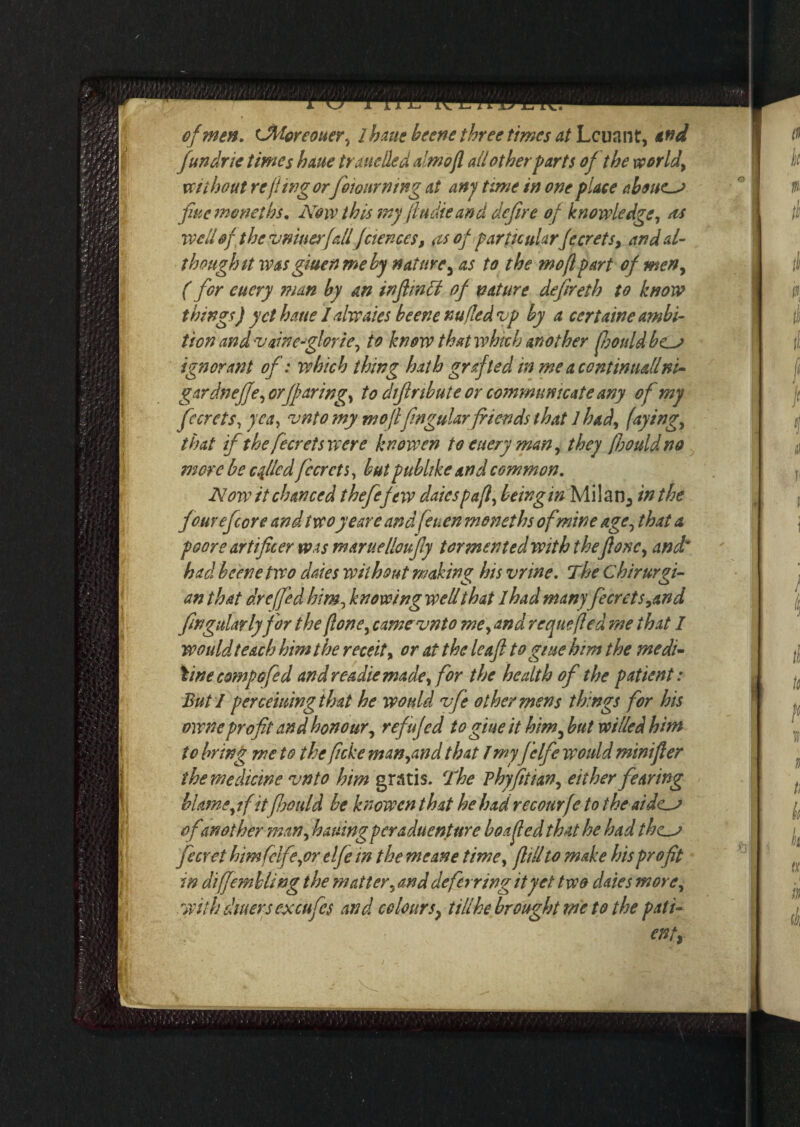 TO THE READER.
of men. Moreouer, I haue beene three times at Leuant, and
ſundrie times haue trauelled almoſt all other parts of the world,
without reſting or ſoiourning at any time in one place aboue
fiue moneths. Now this my ſtudie and deſire of knowledge, as
well of the vniuerſall ſciences, as of particular ſecrets, and al-
though it was giuen me by nature, as to the moſt part of men,
( for euery man by an inſtinct of nature deſireth to know
things) yet haue I alwaies beene nuſled vp by a certaine ambi-
tion and vaine-glorie, to know that which another ſhould be
ignorant of: which thing hath grafted in me a continuall ni-
gardneſſe, or ſparing, to diſtribute or communicate any of my
ſecrets, yea, vnto my moſt ſingular friends that I had, ſaying,
that if the ſecrets were knowen to euery man, they ſhould no
more be called ſecrets, but publike and common.
Now it chanced theſe few daies paſt, being in Milan, in the
foureſcore and two yeare and ſeuen moneths of mine age, that a
poore artificer was maruellouſly tormented with the ſtone, and
had beene two daies without making his vrine. The Chirurgi-
an that dreſſed him, knowing well that I had many ſecrets, and
ſingularly for the ſtone, came vnto me, and requeſted me that I
would teach him the receit, or at the leaſt to giue him the medi-
cine compoſed and readie made, for the health of the patient:
But I perceiuing that he would vſe other mens things for his
owne profit and honour, refuſed to giue it him, but willed him
to bring me to the ſicke man, and that I my ſelfe would miniſter
the medicine vnto him gratis. The Phyſitian, either fearing
blame, if it ſhould be knowen that he had recourſe to the aide
of another man, hauing peraduenture boaſted that he had the
ſecret himſelfe, or elſe in the meane time, ſtill to make his profit
in diſſembling the matter, and deferring it yet two daies more,
with diuers excuſes and colours, till he brought me to the pati-
ent,